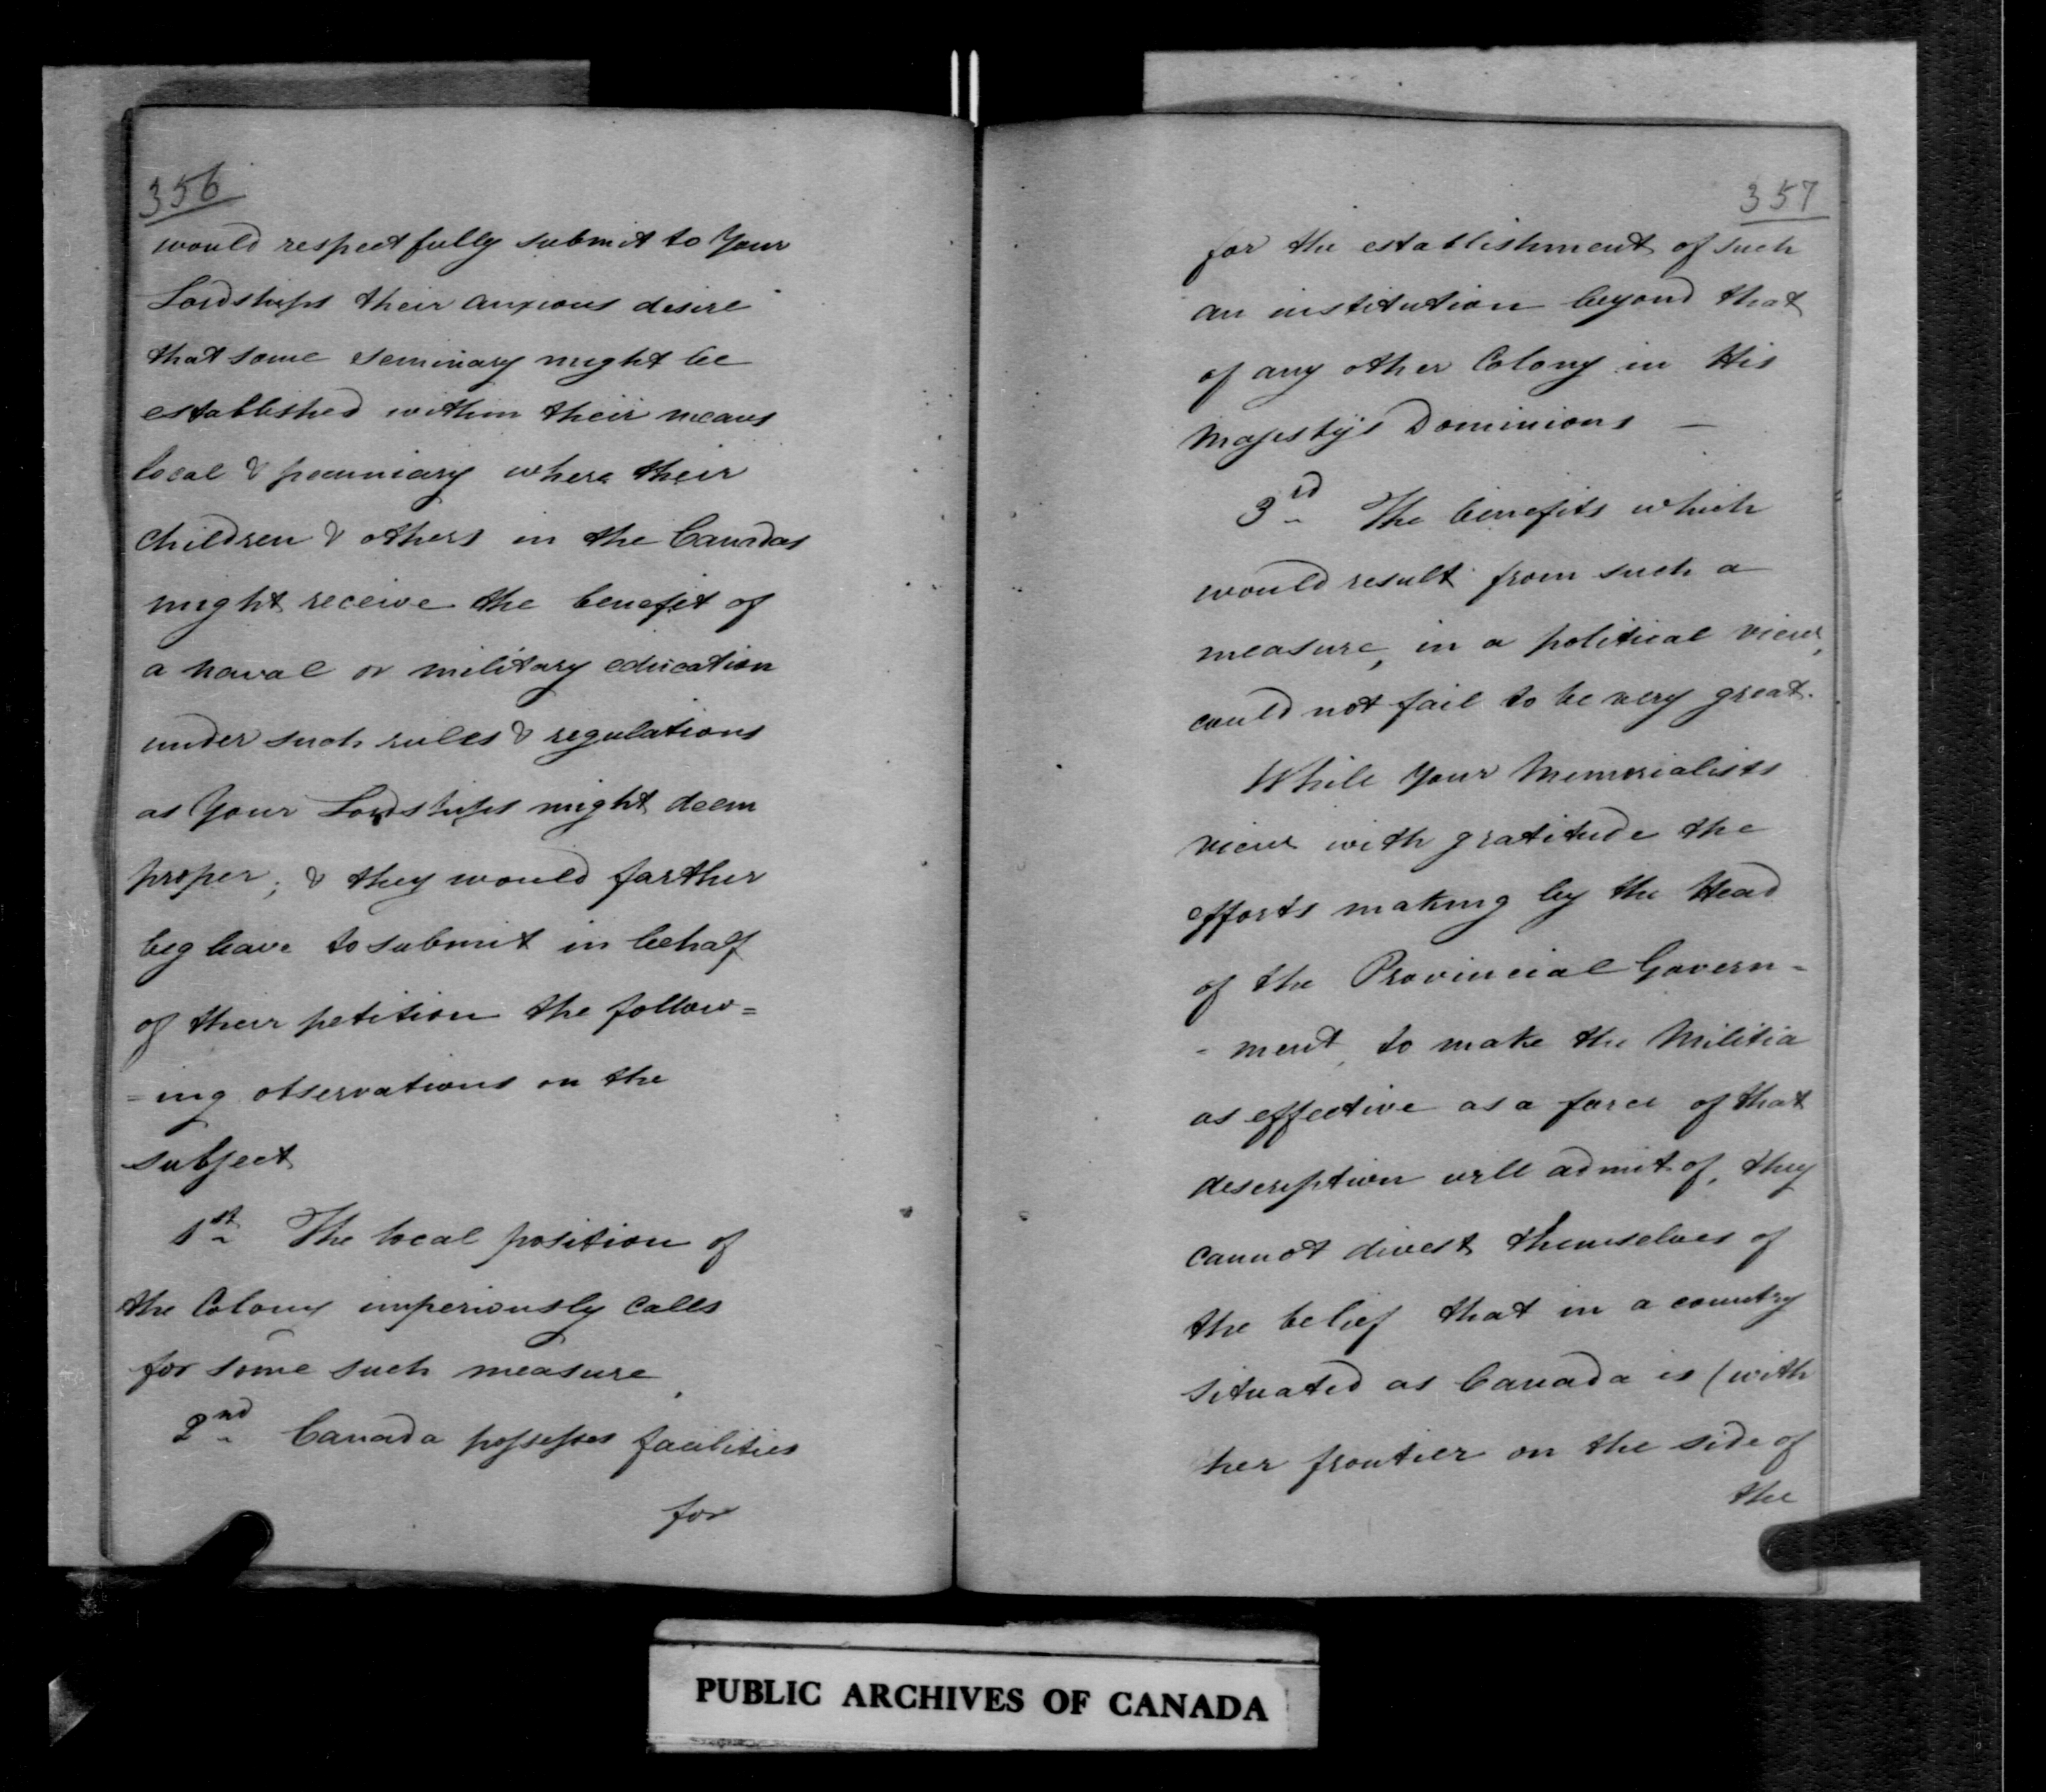 356
would respectfully submit to Your
Lordships their anxious desire
that some seminary might be
established within their means
local & pecuniary where their
children & others in the Canadas
might receive the benefit of
a naval or military education
under such rules & regulations
as Your Lordships might deem
proper; & they would farther
beg leave to submit in behalf
of their petition the follow=
=ing observations on the
subject
1st The local position of
the Colony imperiously calls
for some such measure
2nd Canada possesses facilities
for
357
for the establishment of such
an institution beyond that
of any other Colony in His
Majesty's Dominions —
3rd The benefits which
would result from such a
measure, in a political view,
could not fail to be very great.
While Your Memorialists
view with gratitude the
efforts making by the Head
of the Provincial Govern=
- ment, to make the Militia
as effective as a force of that
description will admit of, they
cannot divest themselves of
the belief that in a country
situated as Canada is (with
her frontier on the side of
the
PUBLIC ARCHIVES OF CANADA